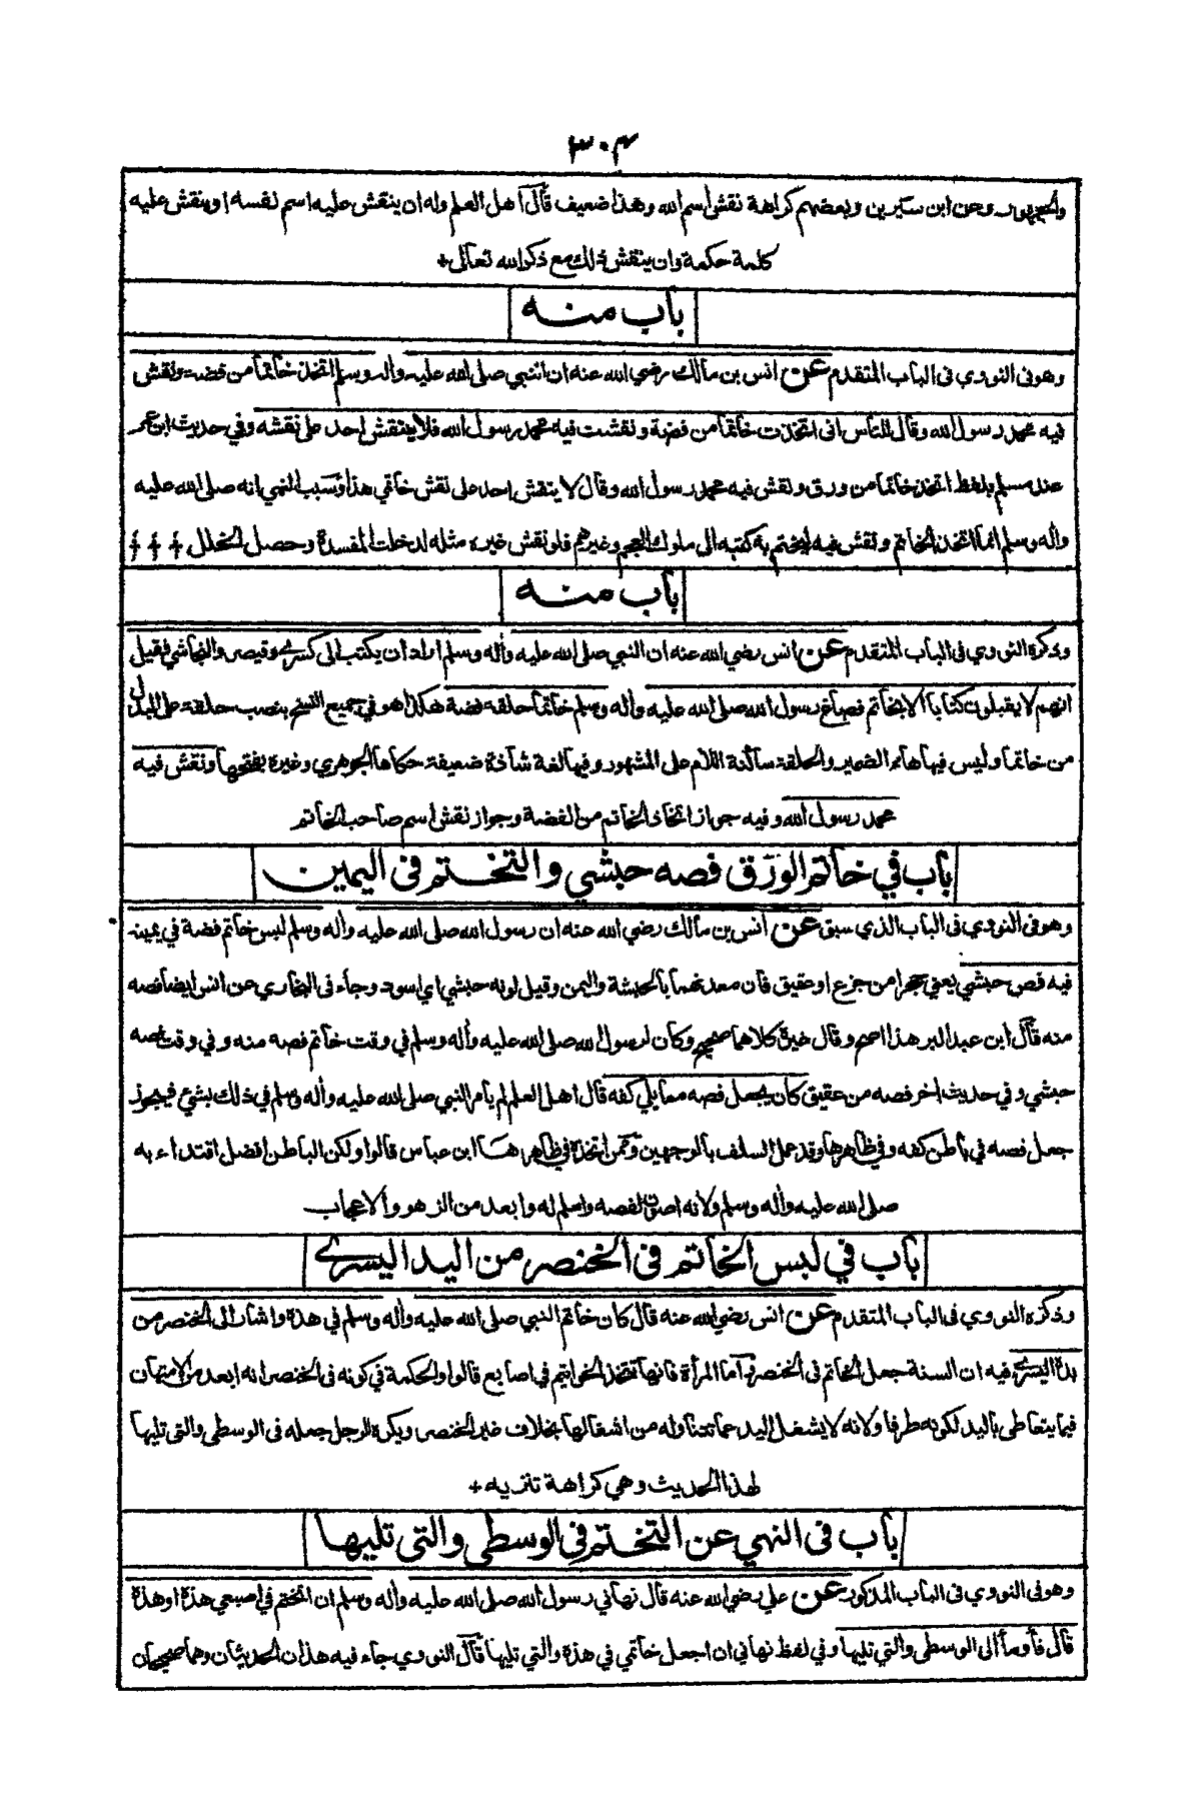 ٣٠٤
والجمهور وعن ابن سيرين وبعضهم كراهة نقش اسم الله وهذا ضعيف قال اهل العلم وله ان ينقش عليه اسم نفسه او ينقش عليه
كلمة حكمة وان ينقش ذلك مع ذكر الله تعالى +
باب منه
وهو في النووي في الباب المتقدم عن انس بن مالك رضي الله عنه ان النبي صلى الله عليه واله وسلم اتخذ خاتما من فضة ونقش
فيه محمد رسول الله وقال للناس انى اتخذت خاتما من فضة ونقشت فيه محمد رسول الله فلا ينقش احد على نقشه وفي حديث ابن عمر
عند مسلم بلفظ اتخذ خاتما من ورق ونقش فيه محمد رسول الله وقال لا ينقش احد على نقش خاتمي هذا وسبب النهي انه صلى الله عليه
واله وسلم انما اتخذ الخاتم ونقش فيه ليختم به كتبه الى ملوك العجم وغيرهم فلو نقش غيره مثله لدخلت المفسدة وحصل الخلل
باب منه
وذكره النووي في الباب المتقدم عن انس رضي الله عنه ان النبي صلى الله عليه واله وسلم اراد ان يكتب الى كسرى وقيصر والنجاشي فقيل
انهم لا يقبلون كتابا الا بخاتم فصاغ رسول الله صلى الله عليه واله وسلم خاتما حلقه فضة هكذا هو في جميع النسخ بنصب حلقة على البدل
من خاتما وليس فيها هاء الضمير والحلقة ساكنة اللام على المشهور وفيها لغة شاذة ضعيفة حكاها الجوهري وغيره بفتحها ونقش فيه
محمد رسول الله وفيه جواز اتخاذ الخاتم من الفضة وجواز نقش اسم صاحب الخاتم
باب في خاتم الورق فصه حبشي والتختم في اليمين
وهو في النووي في الباب الذي سبق عن انس بن مالك رضي الله عنه ان رسول الله صلى الله عليه واله وسلم لبس خاتم فضة في يمينه
فيه فص حبشي يعني حجرا من جزع او عقيق فان معدنهما بالحبشة واليمن وقيل لونه حبشي اي اسود وجاء في البخاري عن انس ايضا فصه
منه قال ابن عبد البر هذا اصح وقال غيره كلاهما صحيح وكان لرسول الله صلى الله عليه واله وسلم في وقت خاتم فصه منه وفي وقت فصه
حبشي وفي حديث اخر فصه من عقيق كان يجعل فصه مما يلي كفه قال اهل العلم لم يأمر النبي صلى الله عليه واله وسلم في ذلك بشئ فيجوز
جعل فصه في باطن كفه وفي ظاهرها وقد عمل السلف بالوجهين وممن اتخذه في ظاهرها ابن عباس قالوا ولكن الباطن افضل اقتداء به
صلى الله عليه واله وسلم ولانه اصون لفصه واسلم له وابعد من الزهو والاعجاب
باب في لبس الخاتم في الخنصر من اليد اليسرى
وذكره النووي في الباب المتقدم عن انس رضي الله عنه قال كان خاتم النبي صلى الله عليه واله وسلم في هذه واشار الى الخنصر من
يده اليسرى فيه ان السنة جعل الخاتم في الخنصر واما المرأة فانها تتخذ الخواتيم في اصابع قالوا والحكمة في كونه في الخنصر انه ابعد من الامتهان
فيما يتعاطى باليد لكونه طرفا ولانه لا يشغل اليد عما تتناوله من اشغالها بخلاف غير الخنصر ويكره الرجل جعله في الوسطى والتي تليها
لهذا الحديث وهي كراهة تنزيه +
باب في النهي عن التختم في الوسطى والتي تليها
وهو في النووي في الباب المذكور عن علي رضي الله عنه قال نهاني رسول الله صلى الله عليه واله وسلم ان اتختم في اصبعي هذه او هذه
قال فأومأ الى الوسطى والتي تليها وفي لفظ نهاني ان اجعل خاتمي في هذه والتي تليها قال النووي جاء فيه هذان الحديثان وهما صحيحان